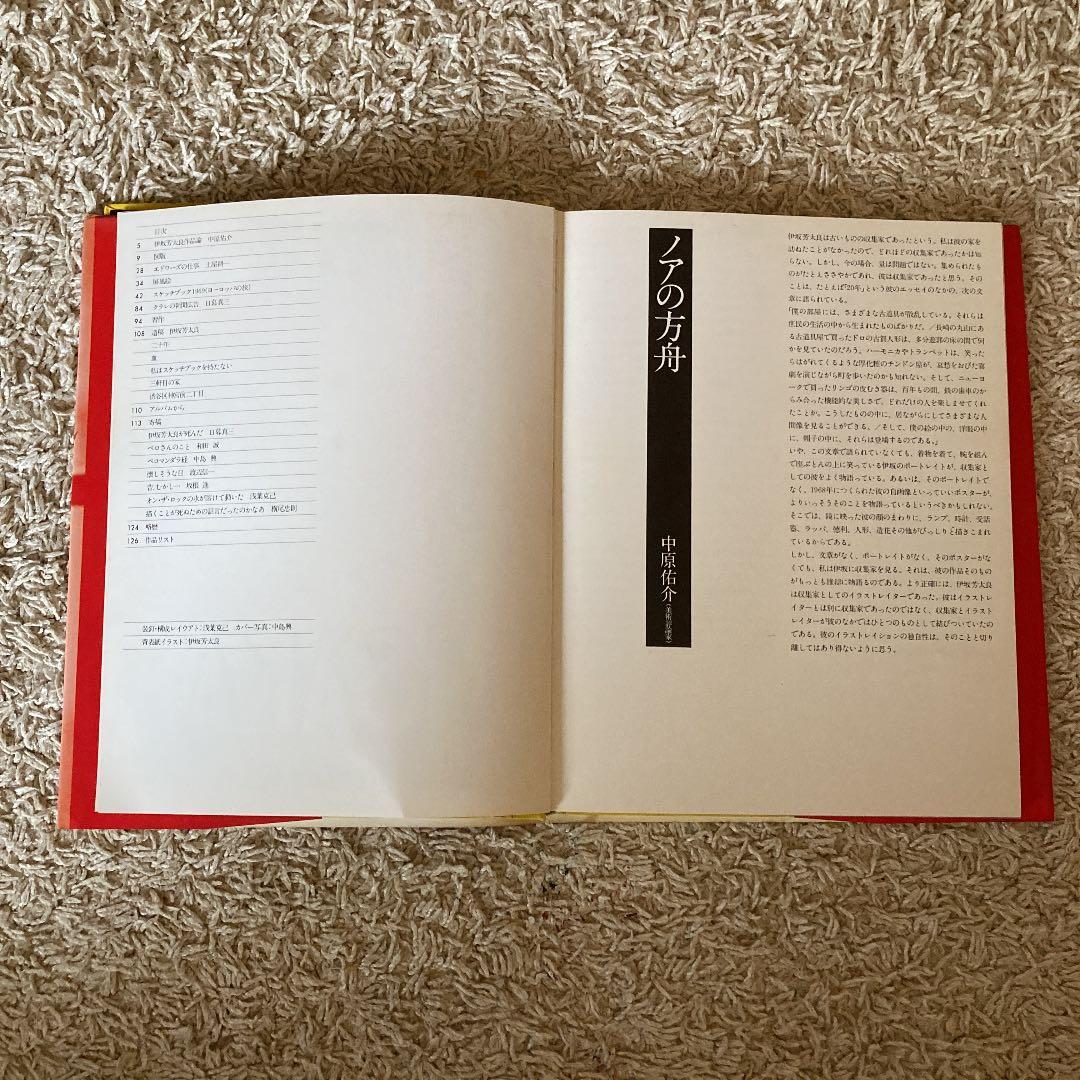 目次
5 伊坂芳太良作品論 中原佑介
9 図版
28 エドワーズの仕事 土屋耕一
34 屏風絵
42 スケッチブック1969(ヨーロッパの旅)
84 クラレの新聞広告 日暮真三
94 習作
108 遺稿 伊坂芳太良
二十年
血
私はスケッチブックを持たない
三軒目の家
渋谷区神宮前二丁目
110 アルバムから
113 寄稿
伊坂芳太良が死んだ 日暮真三
ペロさんのこと 和田 誠
ペロマンダラ経 中島 興
懐しそうな目 渡辺信一
昔、むかし… 坂根 進
オン・ザ・ロックの氷が溶けて動いた 浅葉克己
描くことが死ぬための証言だったのかなあ 横尾忠則
124 略歴
126 作品リスト
装釘・構成レイウアト:浅葉克己 カバー写真:中島興
背表紙イラスト:伊坂芳太良
ノアの方舟
中原佑介〈美術評論家〉
伊坂芳太良は古いものの収集家であったという。私は彼の家を
訪ねたことがなかったので、どれほどの収集家であったかは知
らない。しかし、今の場合、量は問題ではない。集められたも
のがたとえささやかであれ、彼は収集家であったと思う。その
ことは、たとえば「20年」という彼のエッセイのなかの、次の文
章に語られている。
「僕の部屋には、さまざまな古道具が散乱している。それらは
庶民の生活の中から生まれたものばかりだ。/長崎の丸山にあ
る古道具屋で買ったドロの古賀人形は、多分遊郭の床の間で何
かを見ていたのだろう。ハーモニカやトランペットは、笑った
らはがれてくるような厚化粧のチンドン屋が、哀愁をおびた喜
劇を演じながら町を歩いたのかも知れない。そして、ニューヨ
ークで買ったリンゴの皮むき器は、百年もの間、鉄の歯車のか
らみ合った機能的な美しさで、どれだけの人を楽しませてくれ
たことか。こうしたものの中に、居ながらにしてさまざまな人
間像を見ることができる。/そして、僕の絵の中の、洋服の中
に、帽子の中に、それらは登場するのである。」
いや、この文章で語られていなくても、着物を着て、腕を組ん
で座ぶとんの上に笑っている伊坂のポートレイトが、収集家と
しての彼をよく物語っている。あるいは、そのポートレイトで
なく、1968年につくられた彼の自画像といっていいポスターが、
よりいっそうそのことを物語っているというべきかもしれない。
そこでは、鏡に映った彼の顔のまわりに、ランプ、時計、受話
器、ラッパ、徳利、人形、造花その他がびっしりと描きこまれ
ているからである。
しかし、文章がなく、ポートレイトがなく、そのポスターがな
くても、私は伊坂に収集家を見る。それは、彼の作品そのもの
がもっとも雄弁に物語るものである。より正確には、伊坂芳太良
は収集家としてのイラストレイターであった。彼はイラストレ
イターとは別に収集家であったのではなく、収集家とイラスト
レイターが彼のなかではひとつのものとして結びついていたの
である。彼のイラストレイションの独自性は、そのことと切り
離してはあり得ないように思う。